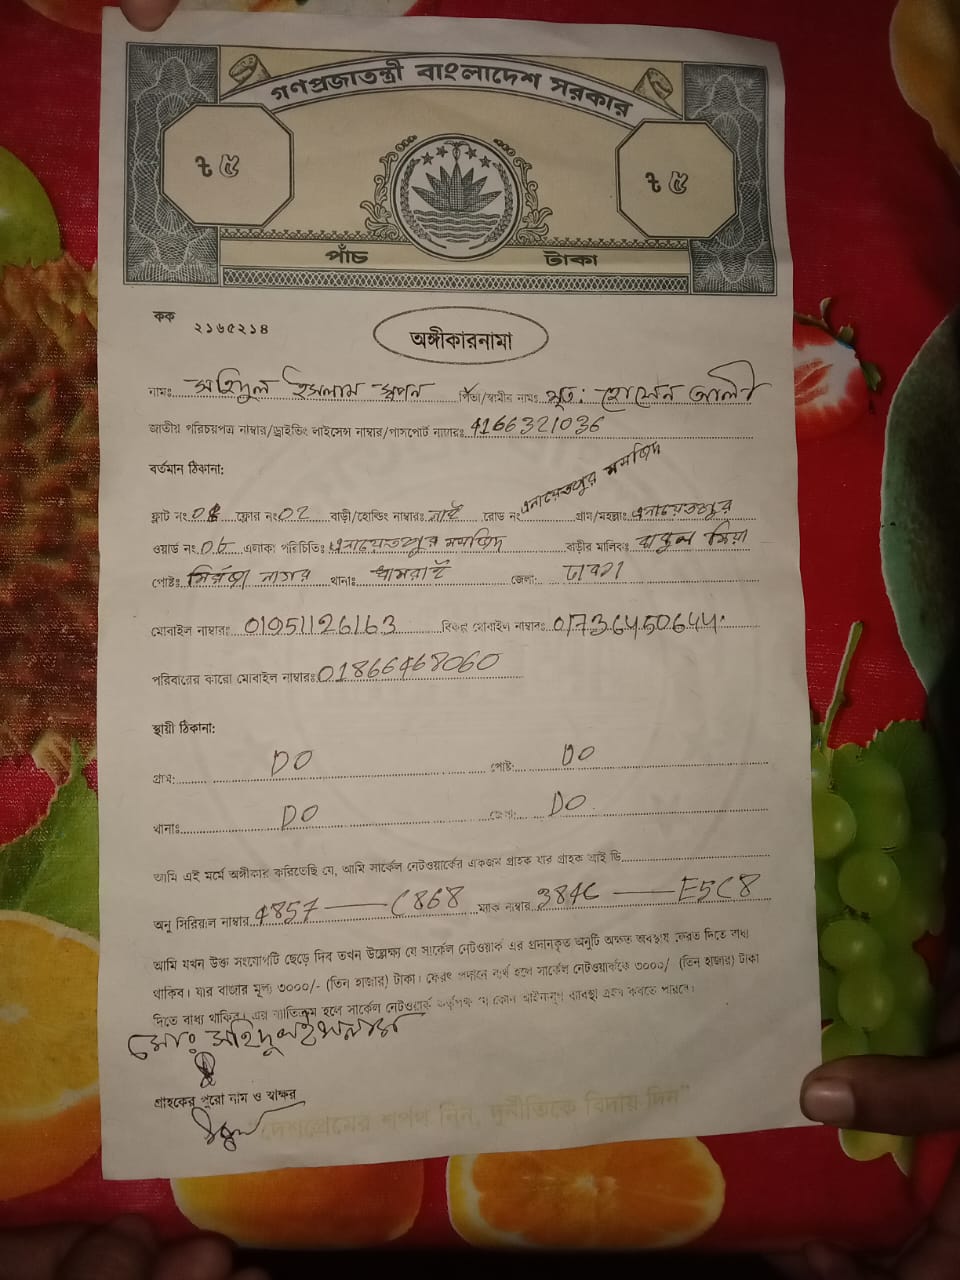 গণপ্রজাতন্ত্রী বাংলাদেশ সরকার
৳ ৫ ৳ ৫
পাঁচ টাকা
কক ২১৬৫২১৪
অঙ্গীকারনামা
নামঃ সহিদুল ইসলাম স্বপন পিতা/স্বামীর নামঃ মৃত: হোসেন আলী
জাতীয় পরিচয়পত্র নাম্বার/ড্রাইভিং লাইসেন্স নাম্বার/পাসপোর্ট নাম্বারঃ 4166321036
বর্তমান ঠিকানা:
ফ্লাট নং ফ্লোর নং 02 বাড়ী/হোল্ডিং নাম্বারঃ নাই রোড নং এনায়েতপুর মসজিদ গ্রাম/মহল্লাঃ এনায়েতপুর
ওয়ার্ড নং 06 এলাকা পরিচিতিঃ এনায়েতপুর মসজিদ বাড়ীর মালিকঃ বাবুল মিয়া
পোষ্টঃ মির্জা নগর থানাঃ ধামরাই জেলা: ঢাকা
মোবাইল নাম্বারঃ 01951126163 বিকল্প মোবাইল নাম্বারঃ 01736450644
পরিবারের কারো মোবাইল নাম্বারঃ 01866468060
স্থায়ী ঠিকানা:
গ্রাম: DO পোষ্ট: DO
থানাঃ DO জেলা: DO
আমি এই মর্মে অঙ্গীকার করিতেছি যে, আমি সার্কেল নেটওয়ার্কের একজন গ্রাহক যার গ্রাহক আই ডি
অনু সিরিয়াল নাম্বার 4857 — C868 ম্যাক নাম্বার 384C — E5C8
আমি যখন উক্ত সংযোগটি ছেড়ে দিব তখন উল্লেক্ষা যে সার্কেল নেটওয়ার্ক এর প্রদানকৃত অনুটি অক্ষত অবস্থায় ফেরত দিতে বাধ্য
থাকিব। যার বাজার মূল্য ৩০০০/- (তিন হাজার) টাকা। ফেরৎ প্রদানে ব্যর্থ হলে সার্কেল নেটওয়ার্ককে ৩০০০/ (তিন হাজার) টাকা
দিতে বাধ্য থাকিব। এর ব্যতিক্রম হলে সার্কেল নেটওয়ার্ক কর্তৃপক্ষ যে কোন আইনানুগ ব্যবস্থা গ্রহন করতে পারবে।
মোঃ সহিদুল ইসলাম
গ্রাহকের পুরো নাম ও স্বাক্ষর
দেশপ্রেমের শপথ নিন, দুর্নীতিকে বিদায় দিন"